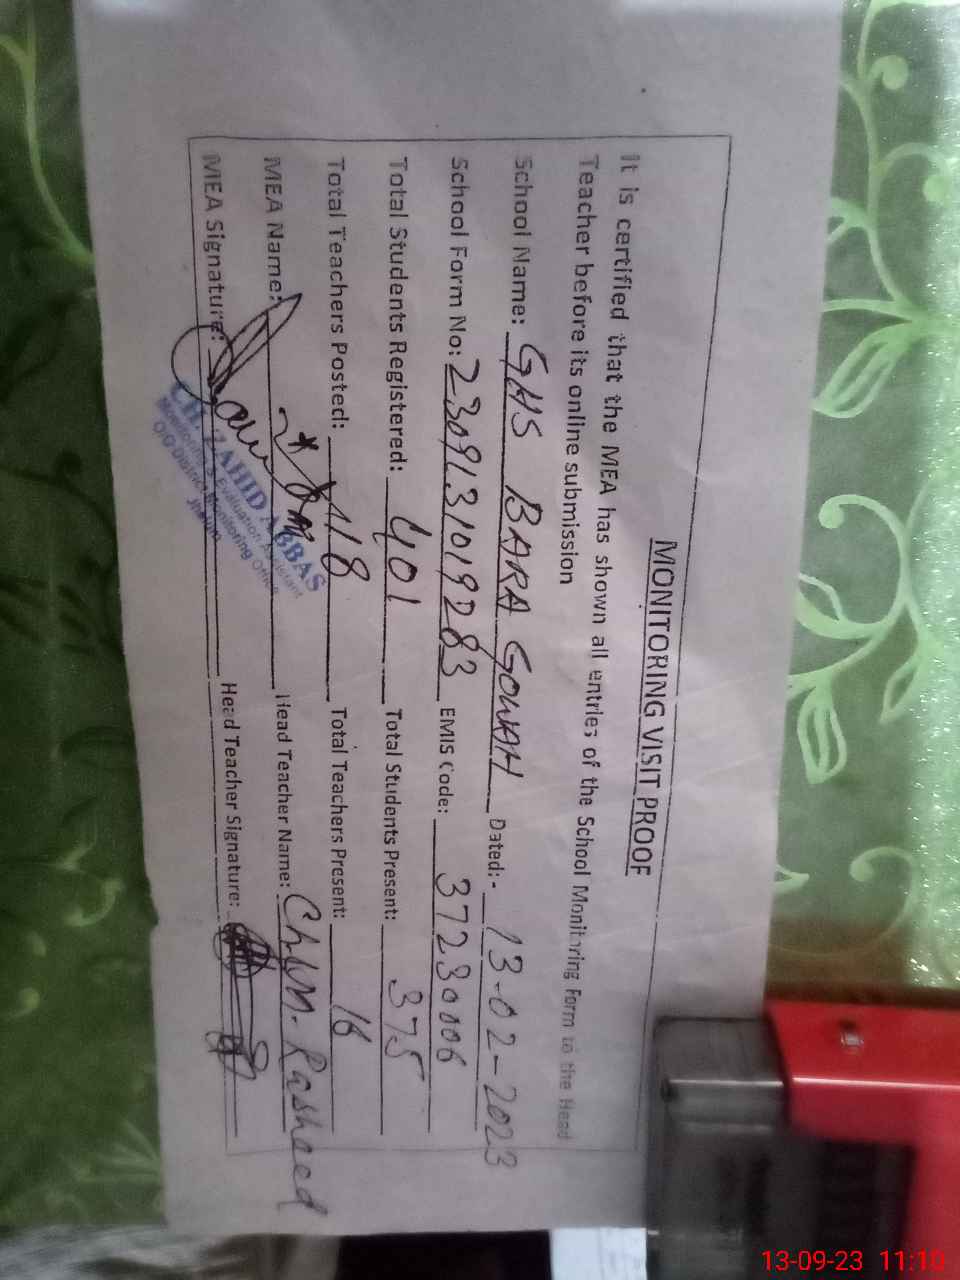 MONITORING VISIT PROOF
It is certified that the MEA has shown all entries of the School Monitoring Form to the Head
Teacher before its online submission
School Name: GHS BARA GOWAH Dated:- 13-02-2023
School Form No: 2309131019283 EMIS Code: 37230006
Total Students Registered: 401 Total Students Present: 375
Total Teachers Posted: 18 Total Teachers Present: 16
MEA Name: Head Teacher Name: Ch. M. Rasheed
MEA Signature: Head Teacher Signature:
CH. ZAHID ABBAS
Monitoring & Evaluation Assistant
O/O District Monitoring Office
Jhelum
13-09-23 11:10